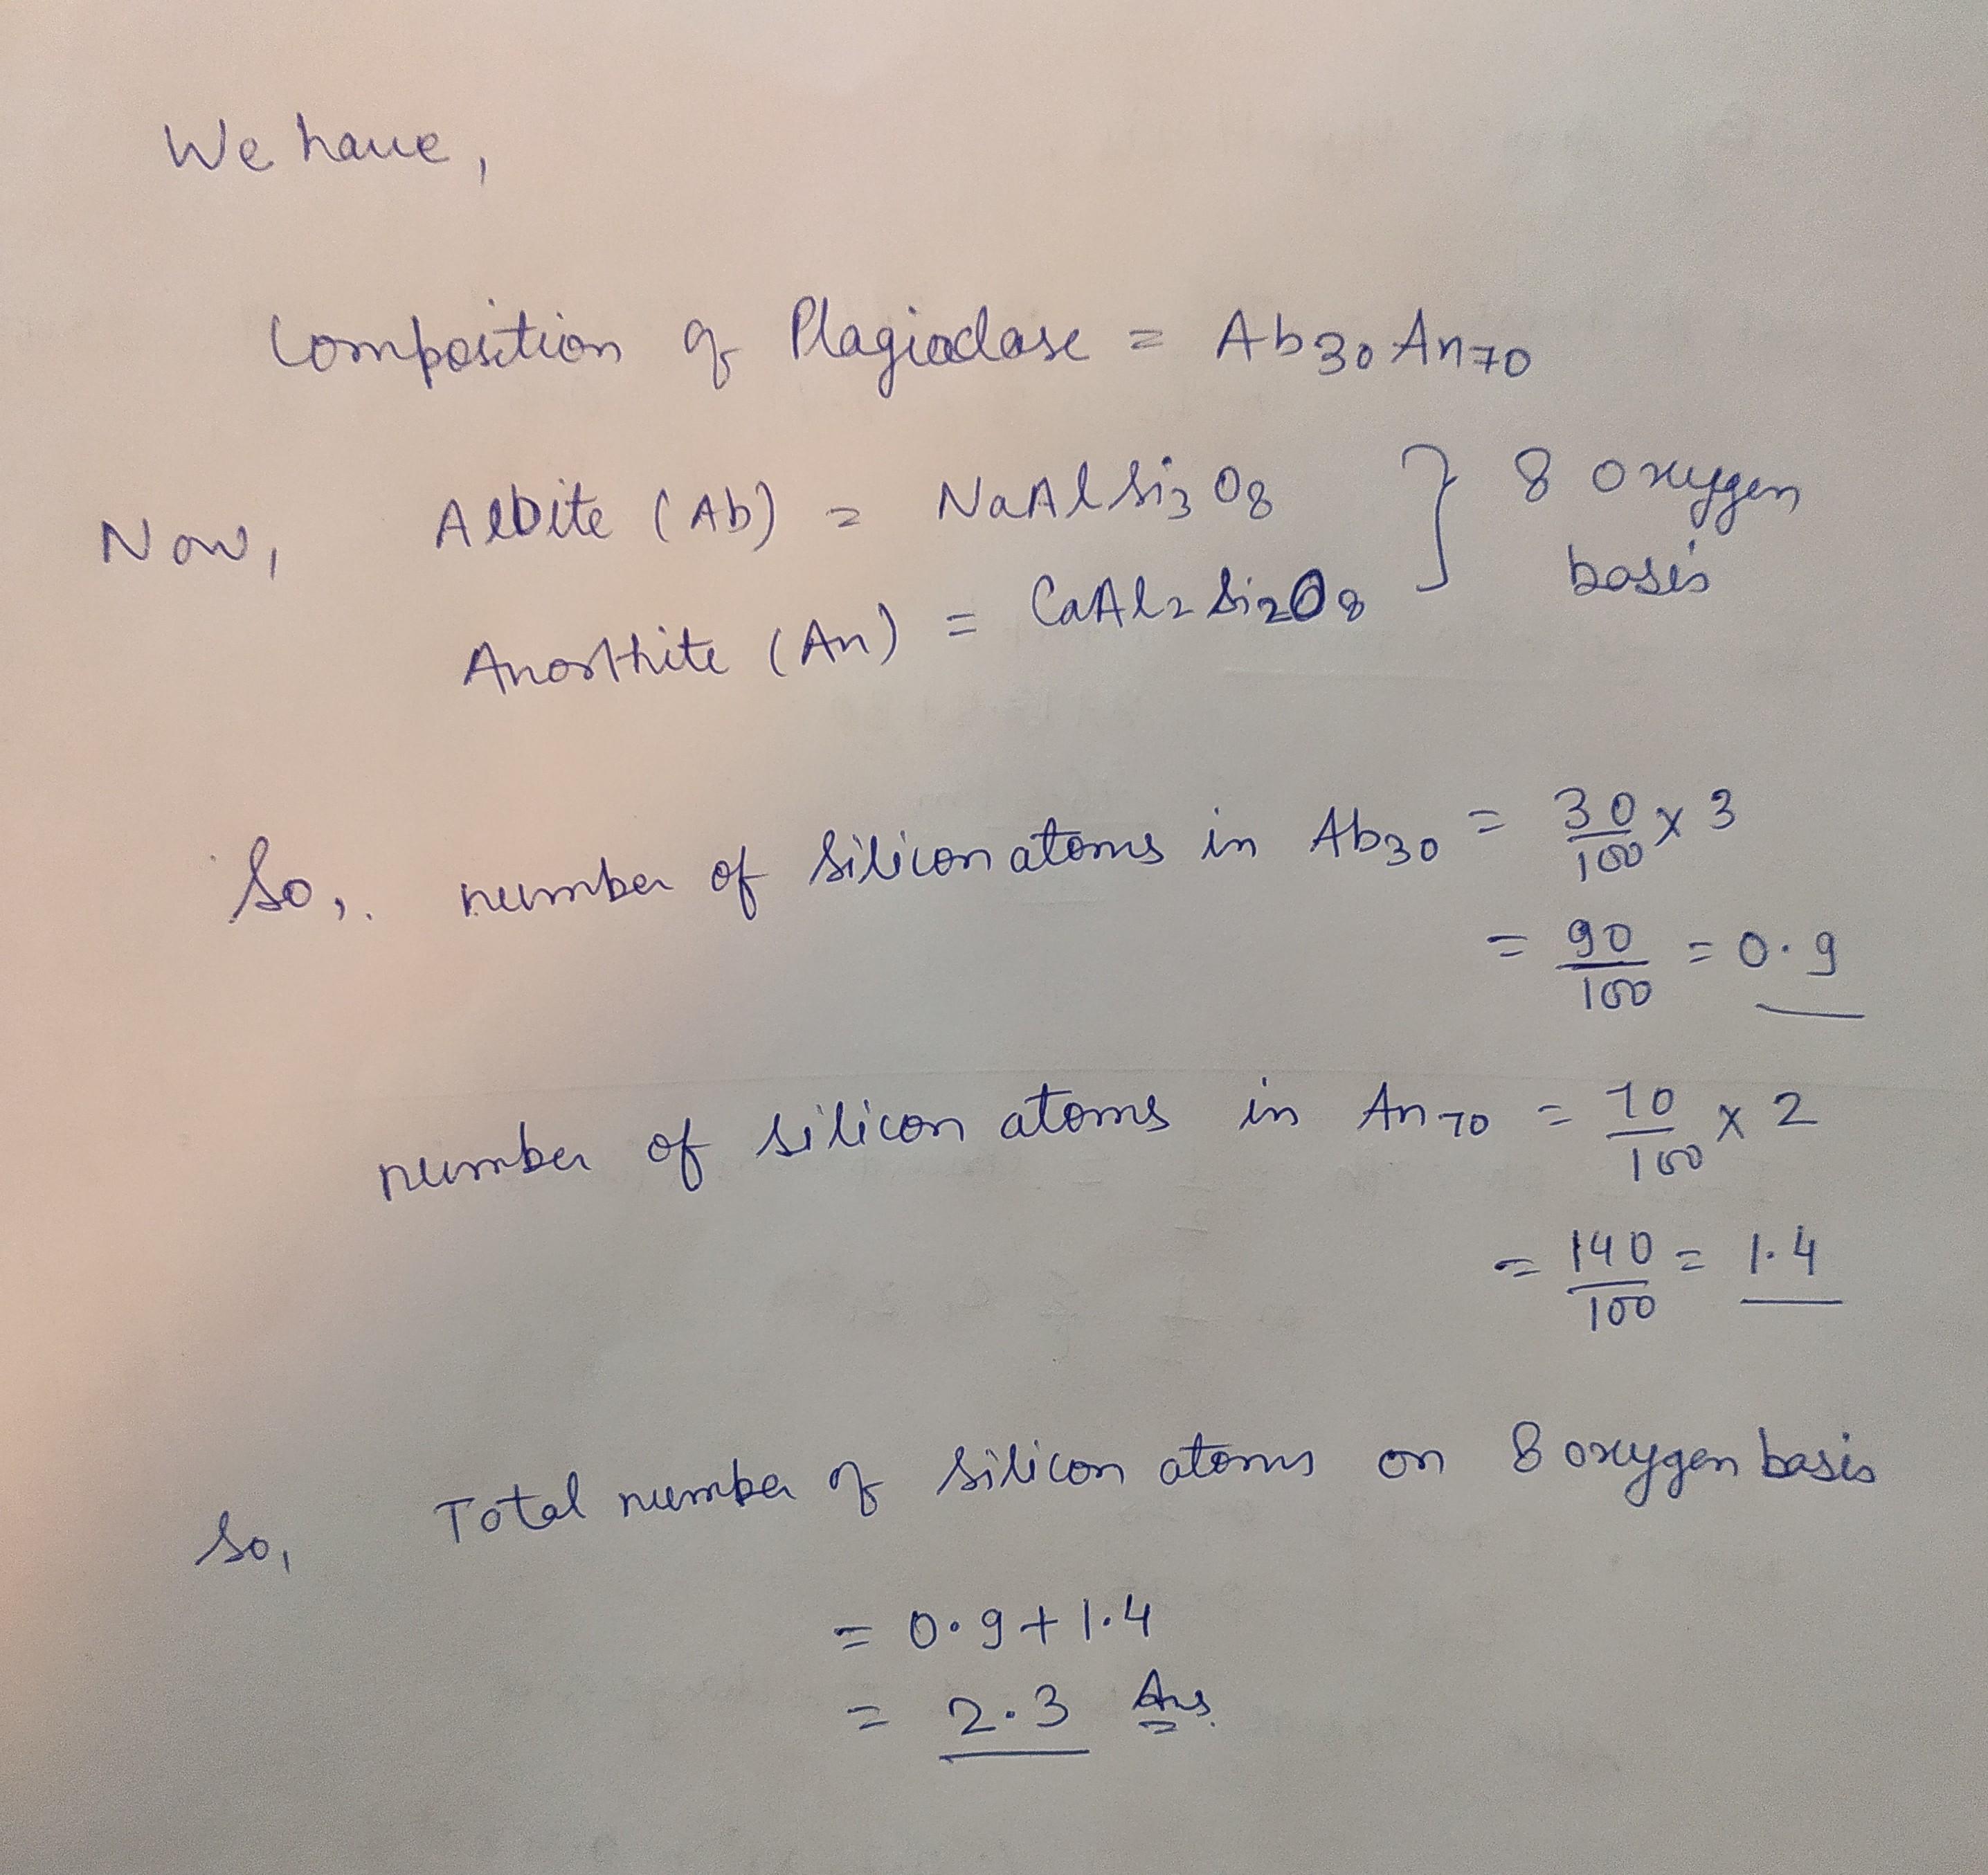 We have,
Composition of Plagioclase = Ab30 An70
Now, Albite (Ab) = NaAlSi3O8 } 8 oxygen basis
Anorthite (An) = CaAl2Si2O8
So,. number of silicon atoms in Ab30 = 30/100 x 3
= 90/100 = 0.9
number of silicon atoms in An70 = 70/100 x 2
= 140/100 = 1.4
So, Total number of silicon atoms on 8 oxygen basis
= 0.9 + 1.4
= 2.3 Ans.